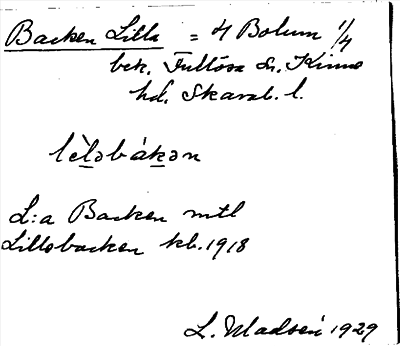 Backen Lilla = 4 Bolum 1/4
bek. Fullösa sn. Kinne
hd. Skarab. l.
lìləbákən
L:a Backen mtl
Lillobacken kb. 1918
L. Madsén 1929